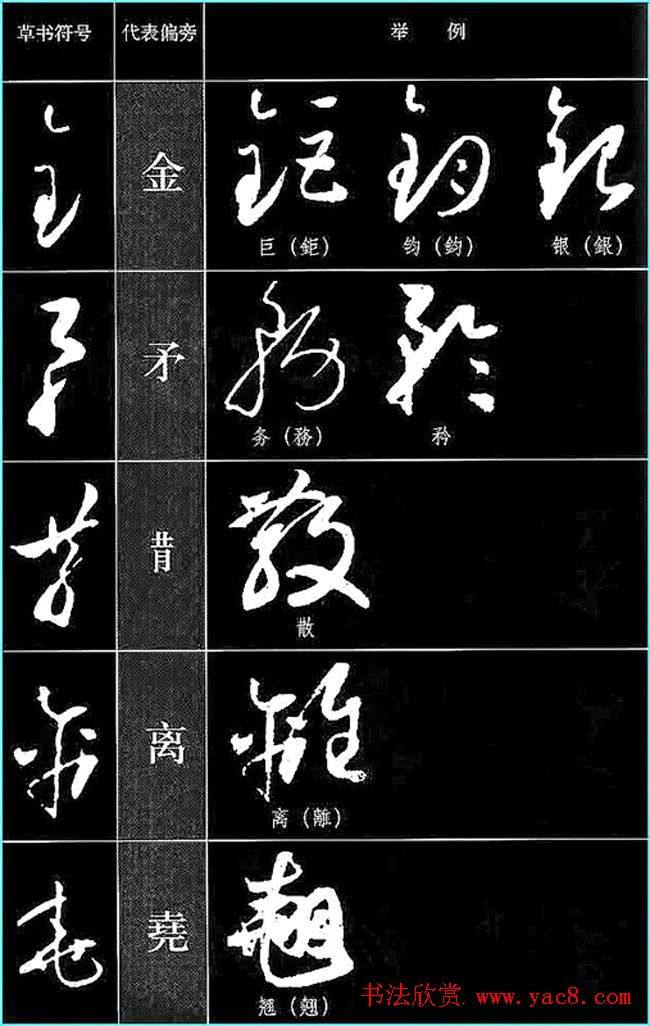 草书符号 代表偏旁 举例
金
巨(鉅) 钧(鈞) 银(銀)
矛
务(務) 矜
散
离
离(離)
堯
翘(翹)
书法欣赏 www.yac8.com